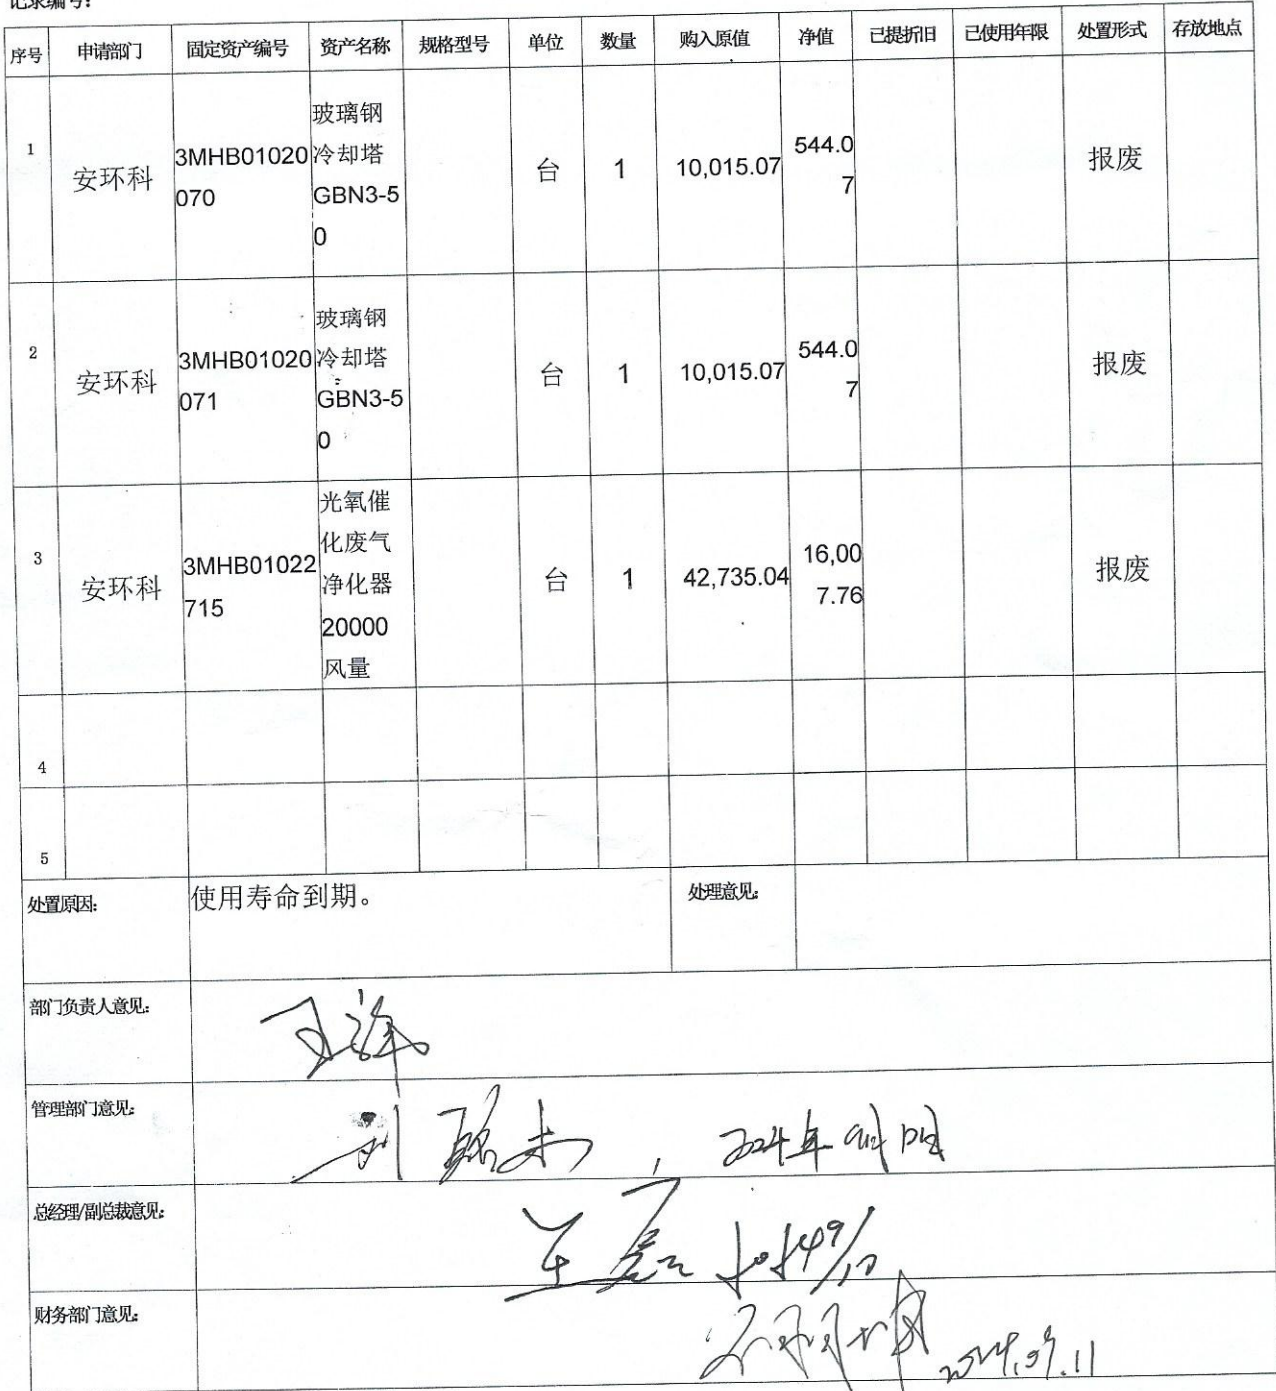 记录编号：
序号 申请部门 固定资产编号 资产名称 规格型号 单位 数量 购入原值 净值 已提折旧 已使用年限 处置形式 存放地点
1 安环科 3MHB01020070 玻璃钢冷却塔GBN3-50 台 1 10,015.07 544.07 报废
2 安环科 3MHB01020071 玻璃钢冷却塔GBN3-50 台 1 10,015.07 544.07 报废
3 安环科 3MHB01022715 光氧催化废气净化器20000风量 台 1 42,735.04 16,007.76 报废
4
5
处置原因： 使用寿命到期。 处理意见：
部门负责人意见：
管理部门意见： 2024年
总经理/副总裁意见：
财务部门意见： 2024.09.11